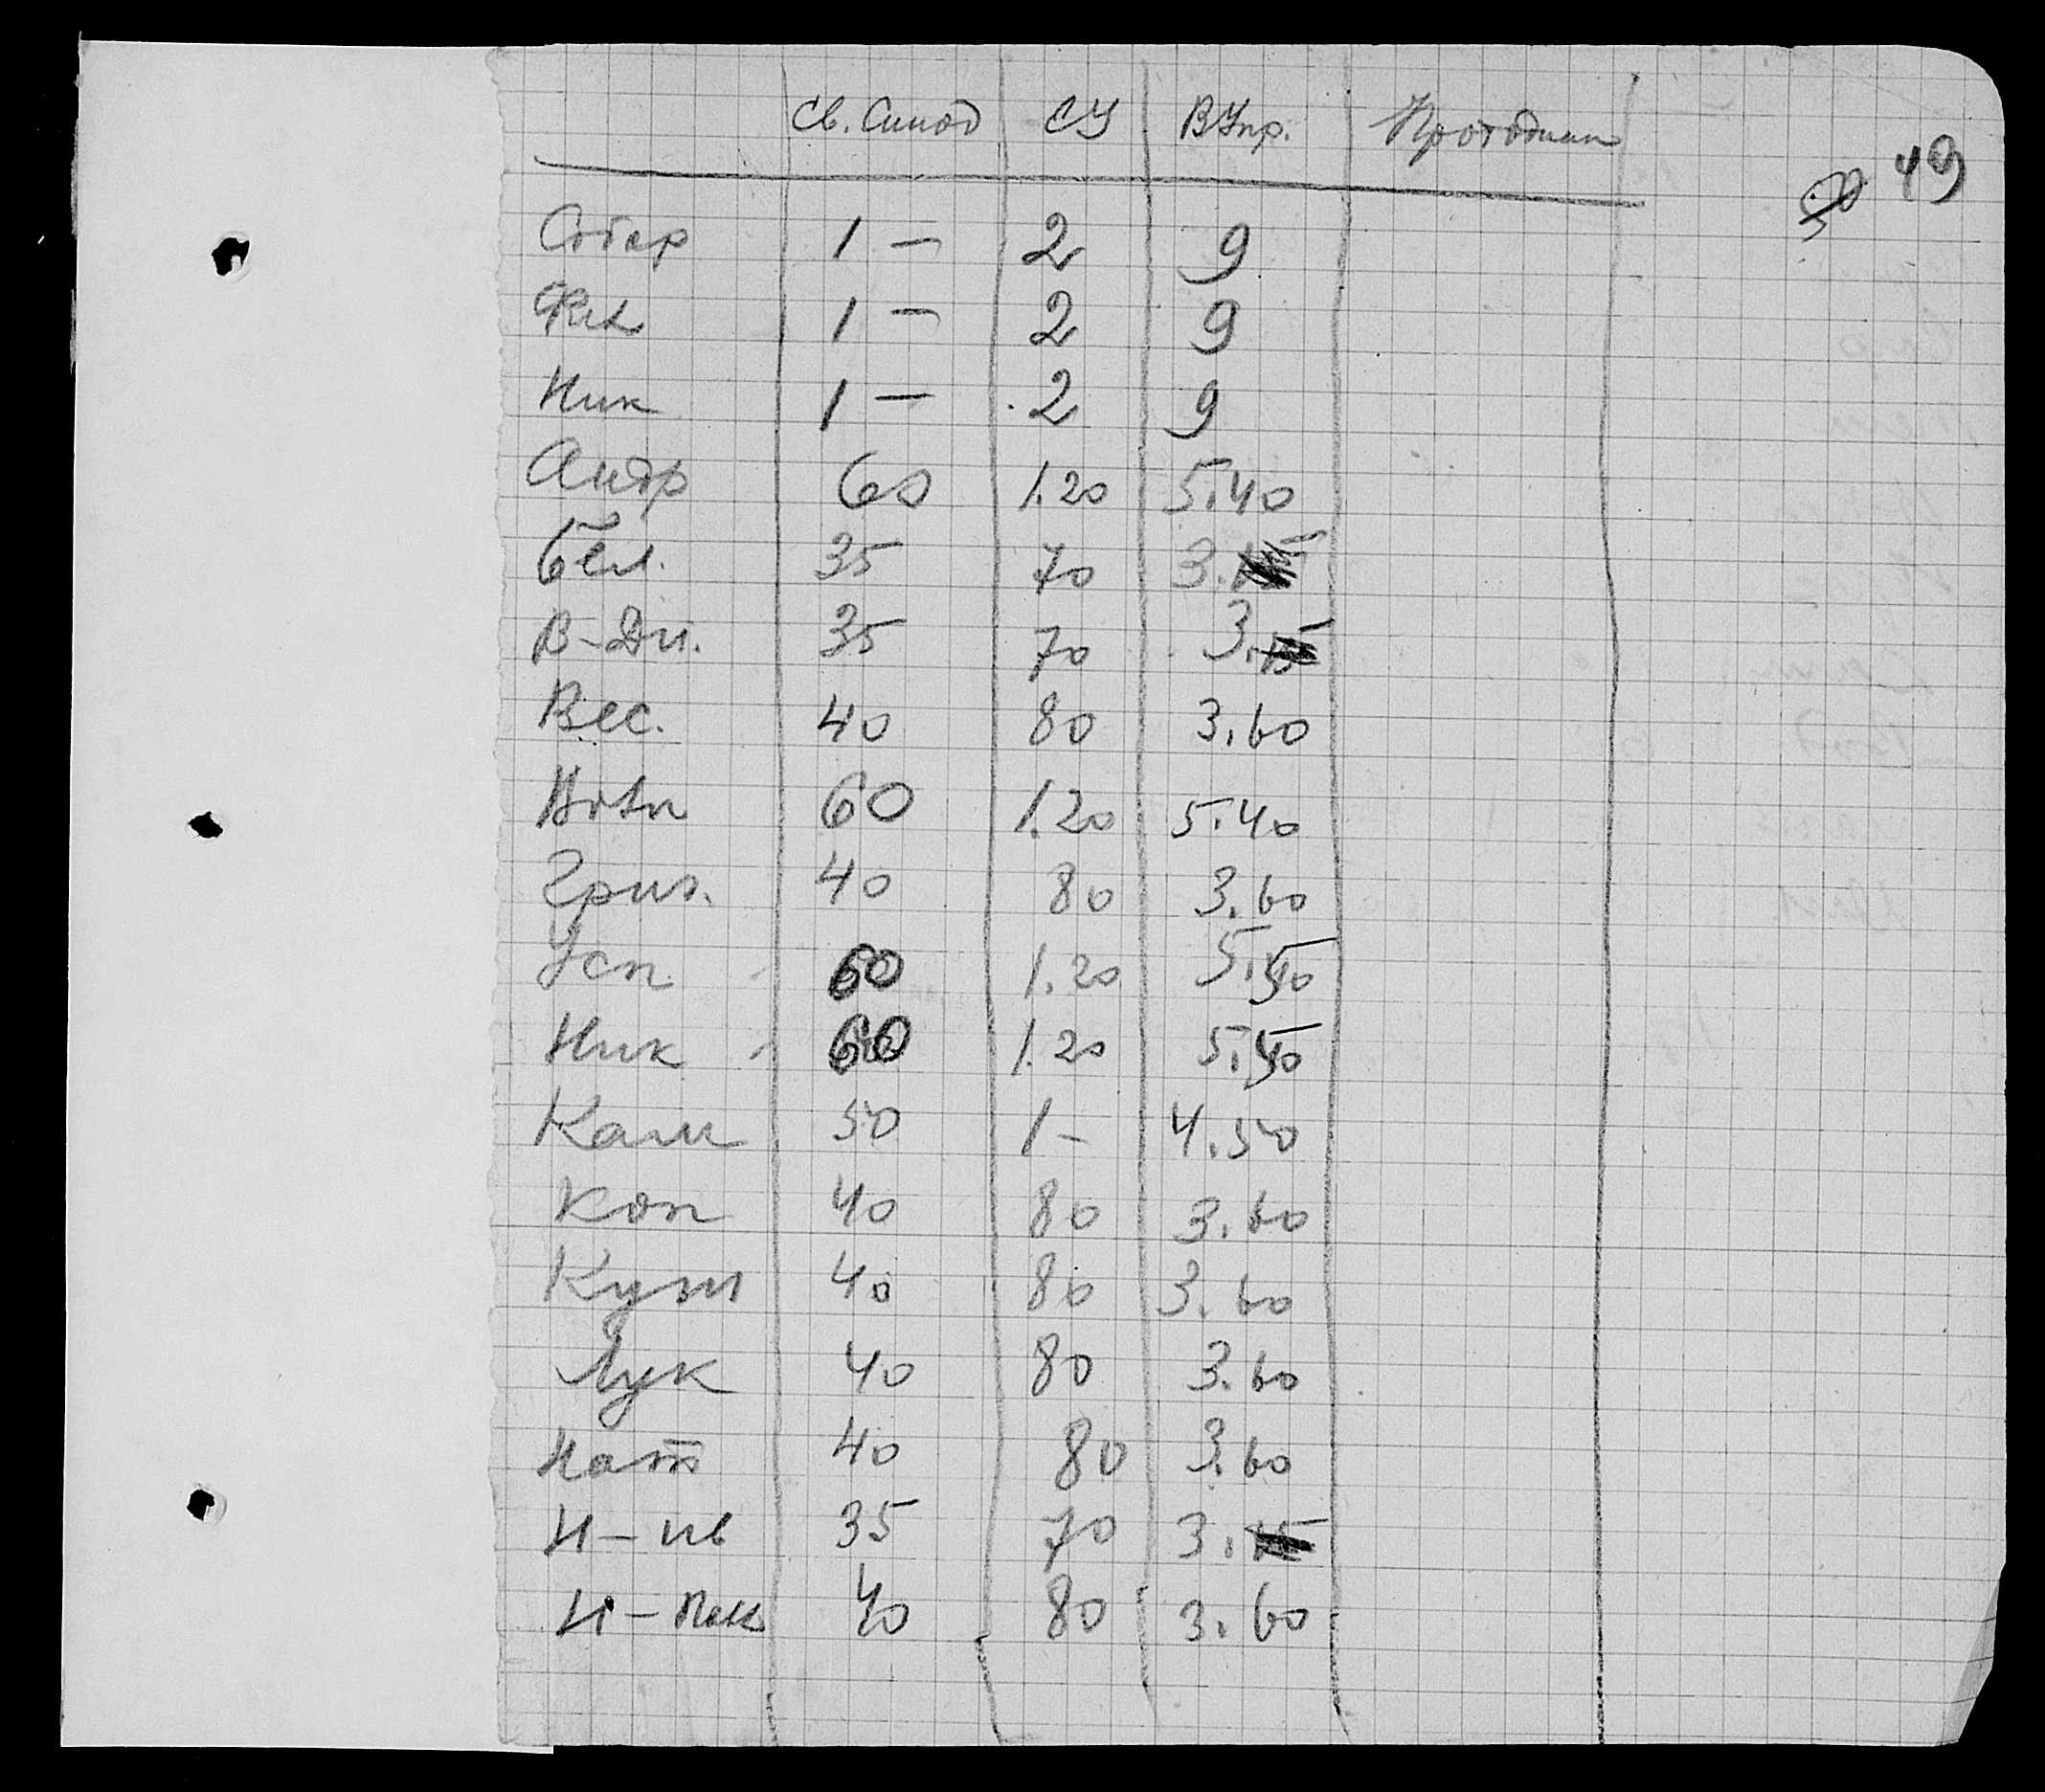 Св. Синод СУ ВУпр. Протодиак
49
Собор 1 — 2 9
1 — 2 9
Ник 1 — 2 9
Андр 60 1.20 5.40
Бел. 35 70 3.
В-Дм. 35 70 3.15
Вес. 40 80 3.60
60 1.20 5.40
Григ. 40 80 3.60
Усп 60 1.20 5.40
Ник 60 1.20 5.40
Кам 50 1 - 4.50
Коп 40 80 3.60
Куш 40 80 3.60
Лук 40 80 3.60
Нат 40 80 3.60
Н-ив 35 70 3.15
Н-Пок 40 80 3.60